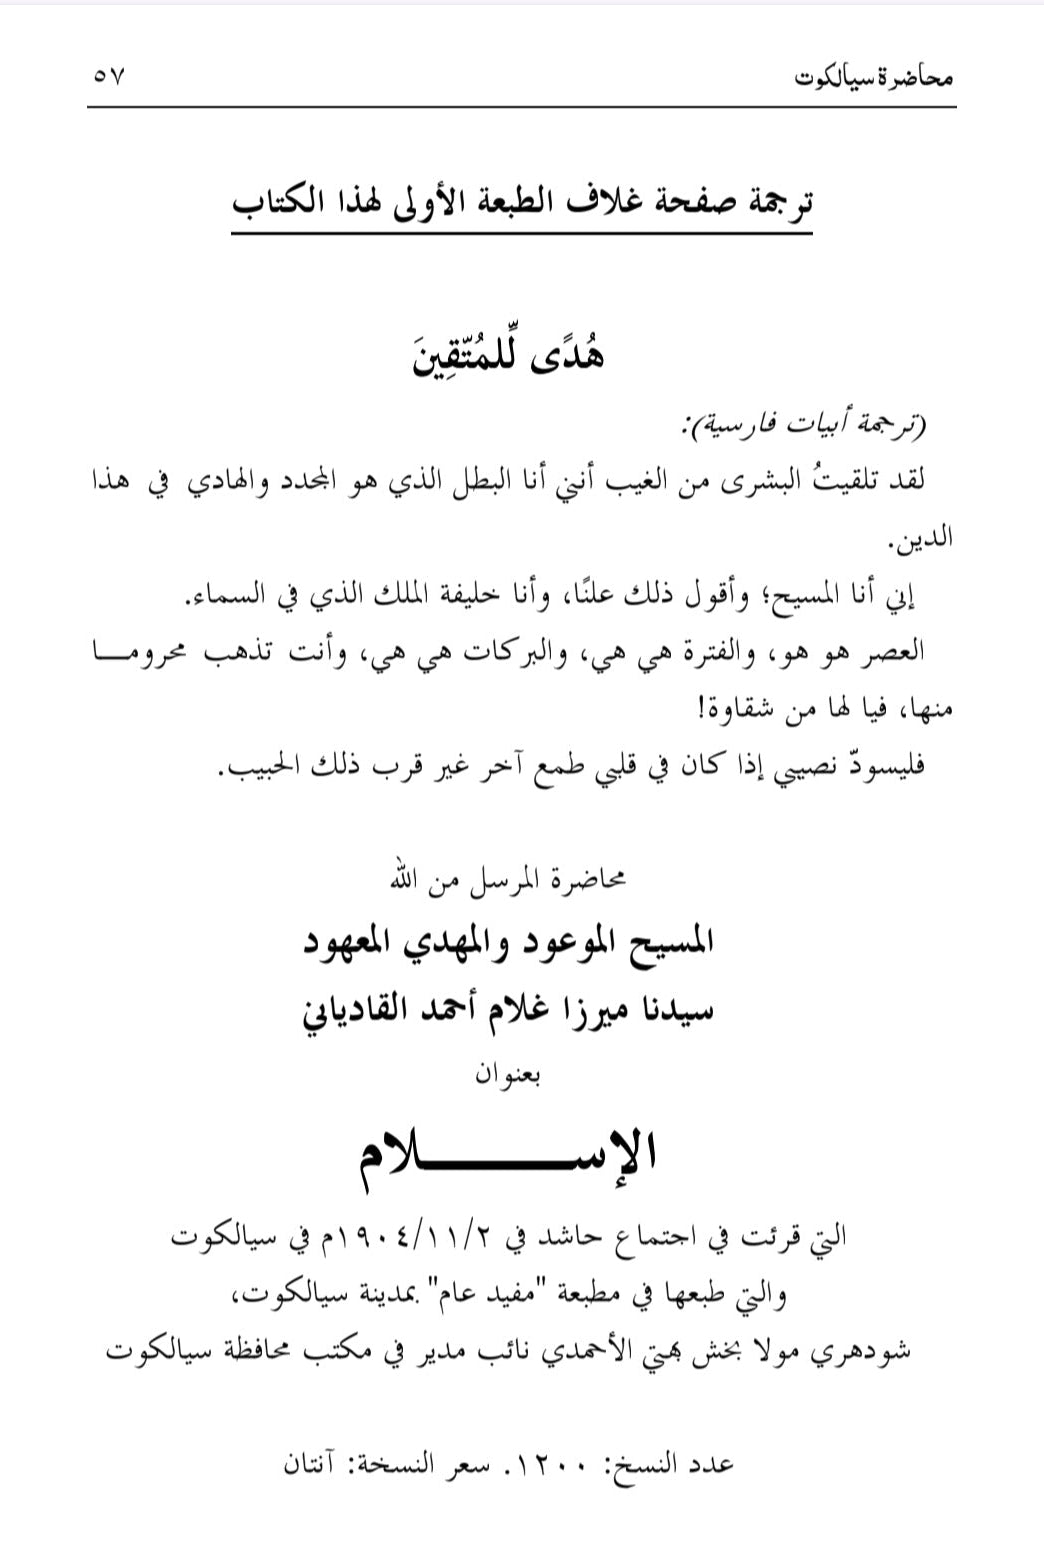 محاضرة سيالكوت ٥٧
ترجمة صفحة غلاف الطبعة الأولى لهذا الكتاب
هُدًى لِّلمُتّقِينَ
(ترجمة أبيات فارسية):
لقد تلقيتُ البشرى من الغيب أنني أنا البطل الذي هو المجدد والهادي في هذا
الدين.
إني أنا المسيح؛ وأقول ذلك علنًا، وأنا خليفة الملك الذي في السماء.
العصر هو هو، والفترة هي هي، والبركات هي هي، وأنت تذهب محرومـــا
منها، فيا لها من شقاوة!
فليسودّ نصيبي إذا كان في قلبي طمع آخر غير قرب ذلك الحبيب.
محاضرة المرسل من الله
المسيح الموعود والمهدي المعهود
سيدنا ميرزا غلام أحمد القادياني
بعنوان
الإســـــــلام
التي قرئت في اجتماع حاشد في ١٩٠٤/١١/٢م في سيالكوت
والتي طبعها في مطبعة "مفيد عام" بمدينة سيالكوت،
شودهري مولا بخش بهتي الأحمدي نائب مدير في مكتب محافظة سيالكوت
عدد النسخ: ١٢٠٠. سعر النسخة: آنتان